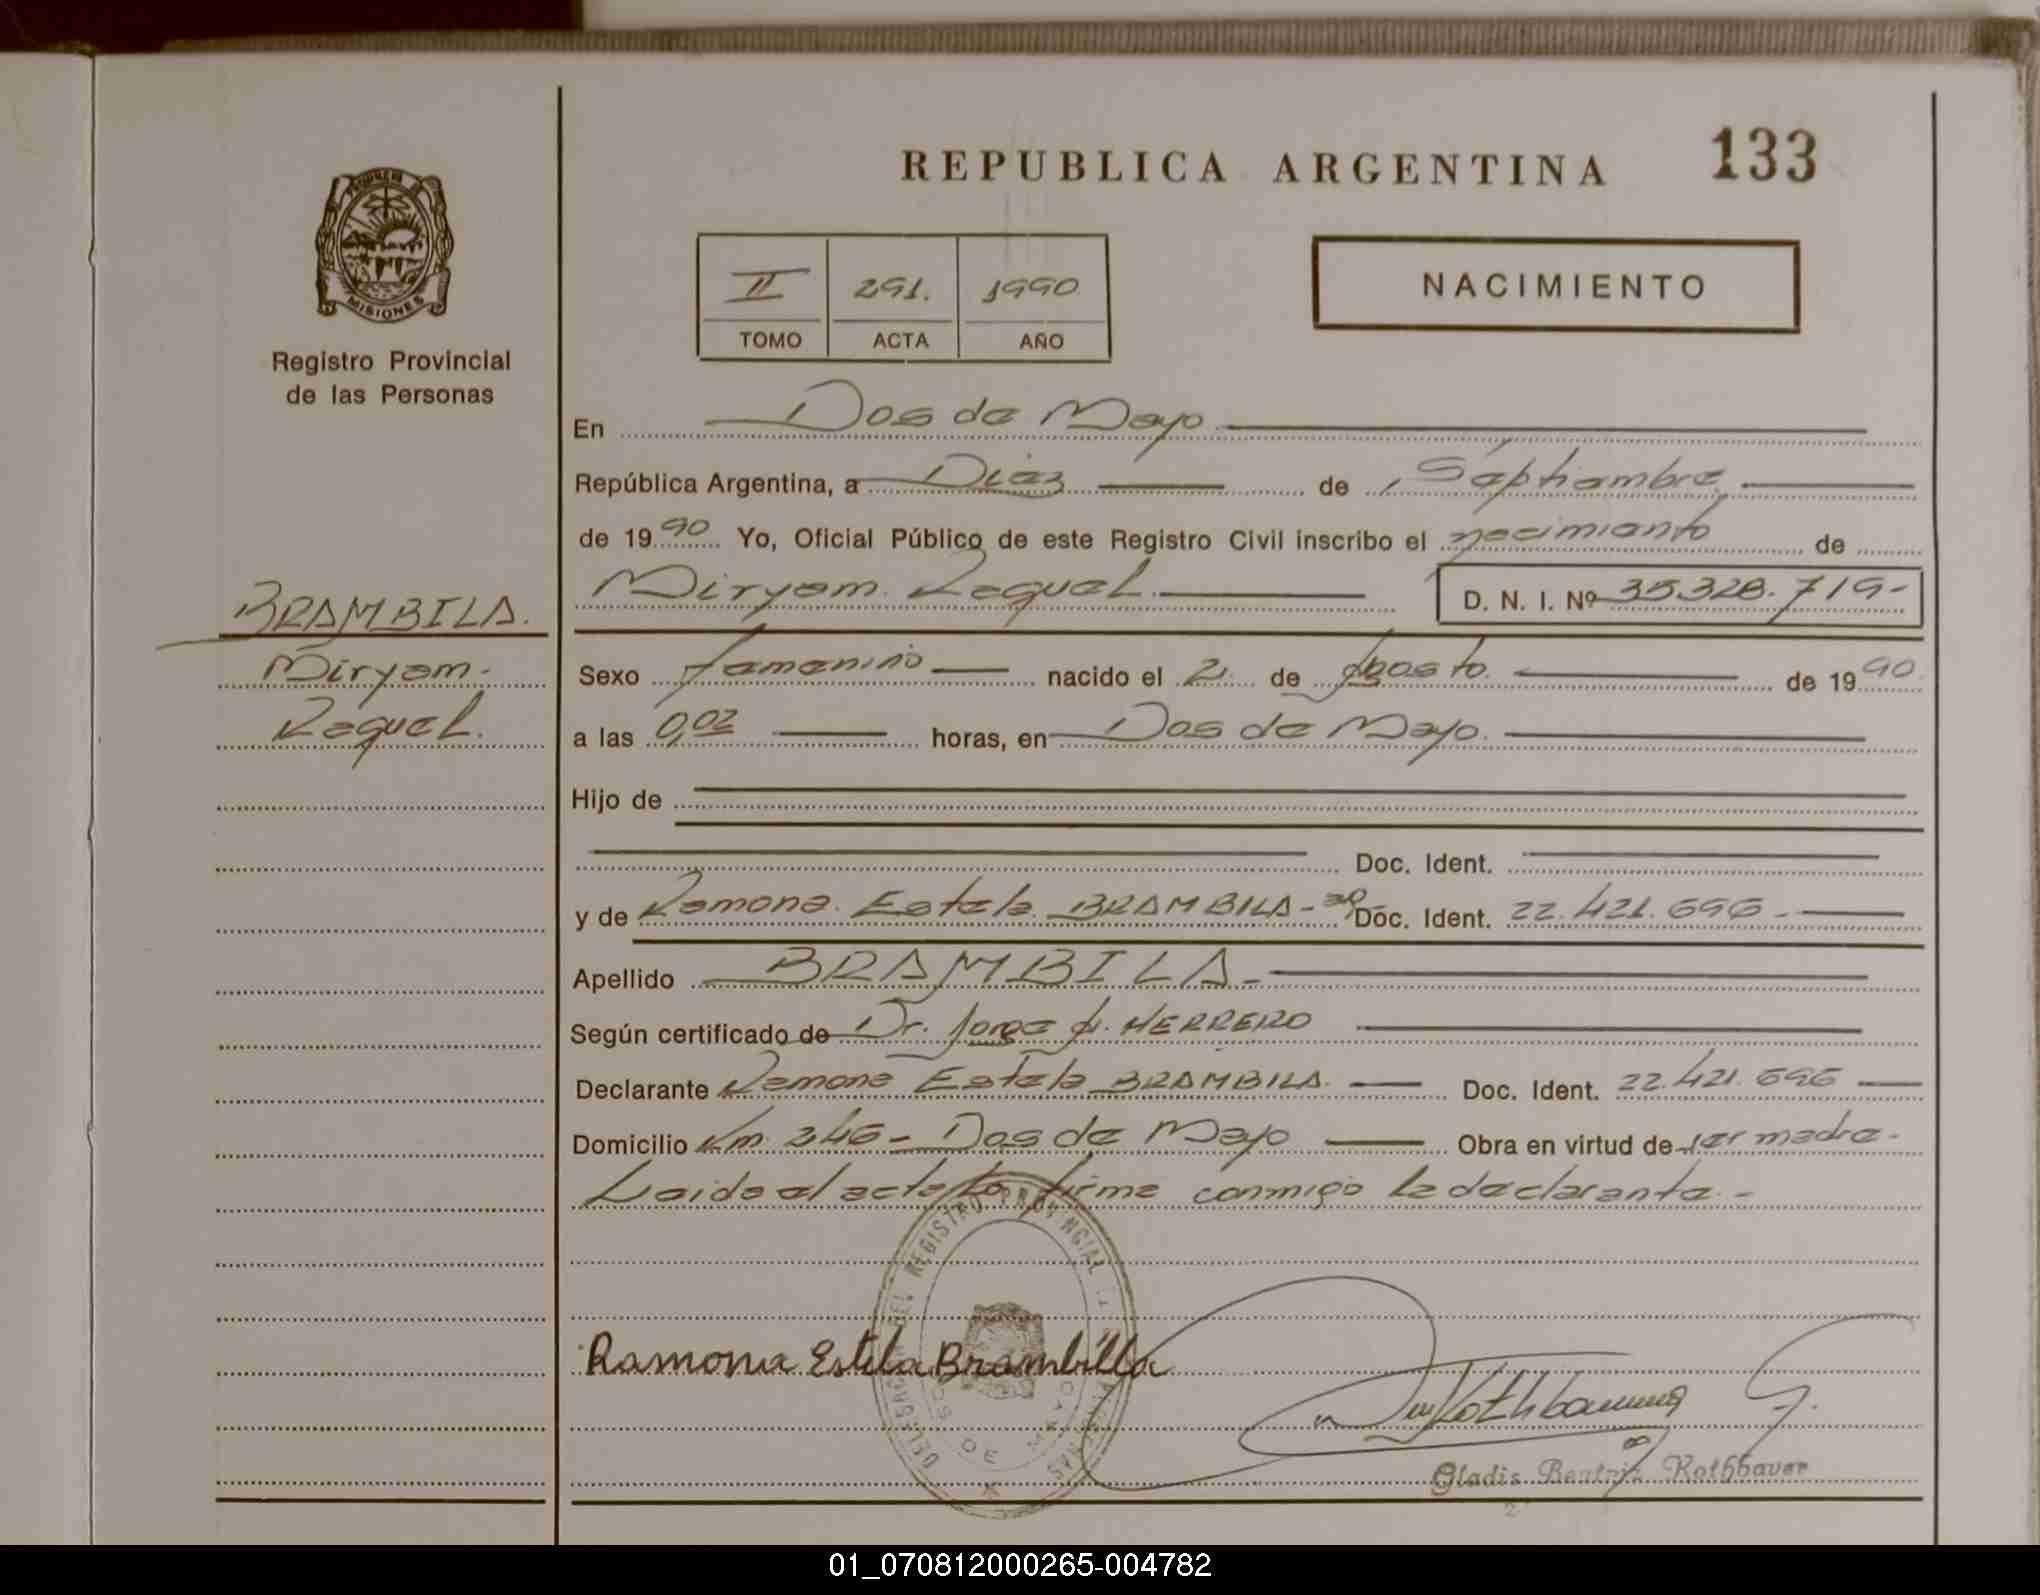 REPUBLICA ARGENTINA 133
MISIONES
Registro Provincial
de las Personas
II 291. 1990
TOMO ACTA AÑO
NACIMIENTO
En Dos de Mayo
República Argentina, a Diez de Septiembre
de 1990 Yo, Oficial Público de este Registro Civil inscribo el nacimiento de
Miryam Raquel. D. N. I. Nº 35.328.719-
BRAMBILA.
Miryam-
Raquel.
Sexo femenino nacido el 2 de Agosto. de 1990
a las 0,02 horas, en Dos de Mayo.
Hijo de
Doc. Ident.
y de Ramona Estela BRAMBILA- Doc. Ident. 22.421.696-
Apellido BRAMBILA-
Según certificado de Dr. Jorge A. HERRERO
Declarante Ramona Estela BRAMBILA. Doc. Ident. 22.421.696
Domicilio Km. 246- Dos de Mayo Obra en virtud de ser madre-
Leida el acta la firma conmigo la declarante.-
DELEGACION DEL REGISTRO PROVINCIAL DE LAS PERSONAS
DOS DE MAYO
Ramona Estela Brambilla
Rothbauer G.
Gladis Beatriz Rothbauer
01_070812000265-004782